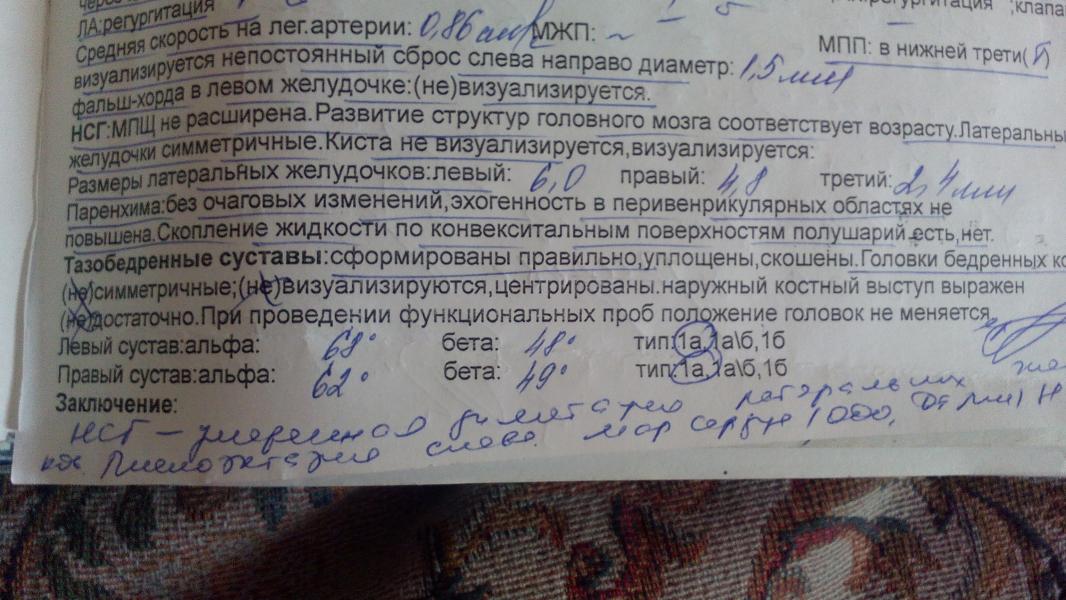 ЛА:регургитация
Средняя скорость на лег.артерии: 0,86 МЖП: ~ МПП: в нижней трети(
визуализируется непостоянный сброс слева направо диаметр: 1,5 мм
фальш-хорда в левом желудочке:(не)визуализируется.
НСГ:МПЩ не расширена.Развитие структур головного мозга соответствует возрасту.Латеральны
желудочки симметричные.Киста не визуализируется,визуализируется:
Размеры латеральных желудочков:левый: 6,0 правый: 4,8 третий: 2,4мм
Паренхима:без очаговых изменений,эхогенность в перивенрикулярных областях не
повышена.Скопление жидкости по конвекситальным поверхностям полушарий есть,нет.
Тазобедренные суставы:сформированы правильно,уплощены,скошены.Головки бедренных ко
(не)симметричные;(не)визуализируются,центрированы.наружный костный выступ выражен
(не)достаточно.При проведении функциональных проб положение головок не меняется
Левый сустав:альфа: 68° бета: 48° тип:1а,1а\б,1б
Правый сустав:альфа: 62° бета: 49° тип:1а,1а\б,1б
Заключение:
НСГ – умеренная дилатация латеральных
Пиелоэктазия слева.